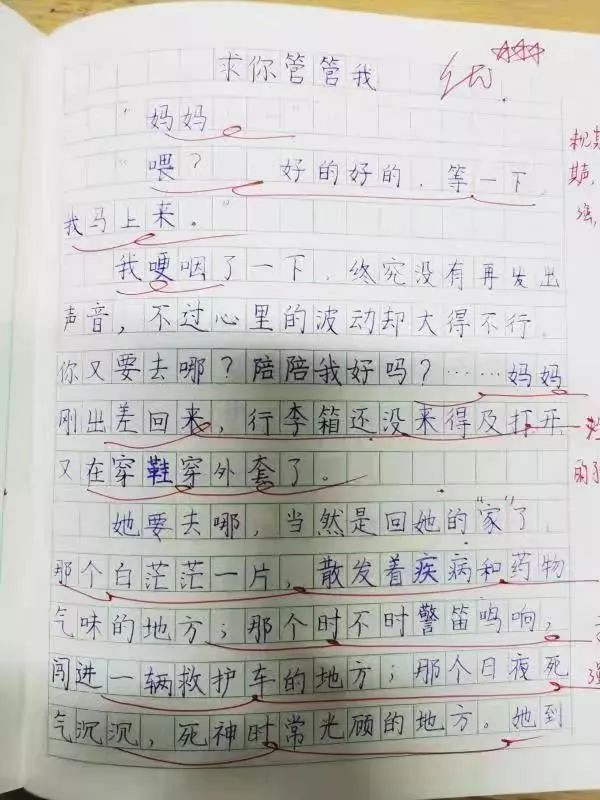 求你管管我
优
"妈妈
"喂？ 好的好的，等一下，
我马上来。"
我哽咽了一下，终究没有再发出
声音，不过心里的波动却大得不行，
你又要去哪？陪陪我好吗？……妈妈
刚出差回来，行李箱还没来得及打开
又在穿鞋穿外套了。
她要去哪，当然是回她的"家"了，
那个白茫茫一片，散发着疾病和药物
气味的地方；那个时不时警笛鸣响，
闯进一辆救护车的地方；那个日夜死
气沉沉，死神时常光顾的地方。她到